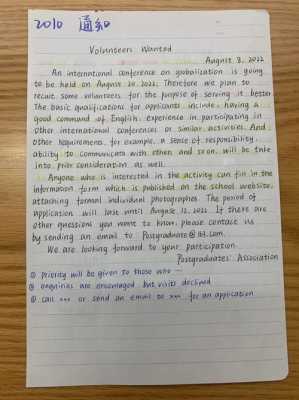 2010 通知
Volunteers Wanted
August 3, 2022
An international conference on globalization is going
to be held on August 20 2022. Therefore we plan to
recuit some volunteers for the purpose of serving it better
The basic qualifications for applicants include, having a
good command of English, experience in participating in
other international conferences or similar activities. And
other requirements, for example, a sense of responsibility,
ability to communicate with others and so on will be take
into prior consideration as well.
Anyone who is interested in the activity can fin in the
information form which is published on the school website,
attaching formal individual photographes. The period of
application will last until August 12. 2022. If there are
other questions you want to know, please contact us
by sending an email to Postgraduate@163.com.
We are looking forward to your participation.
Postgraduates' Association
① priority will be given to those who ...
② enquiries are encouraged but visits declined
③ call *** or send an email to *** for an application